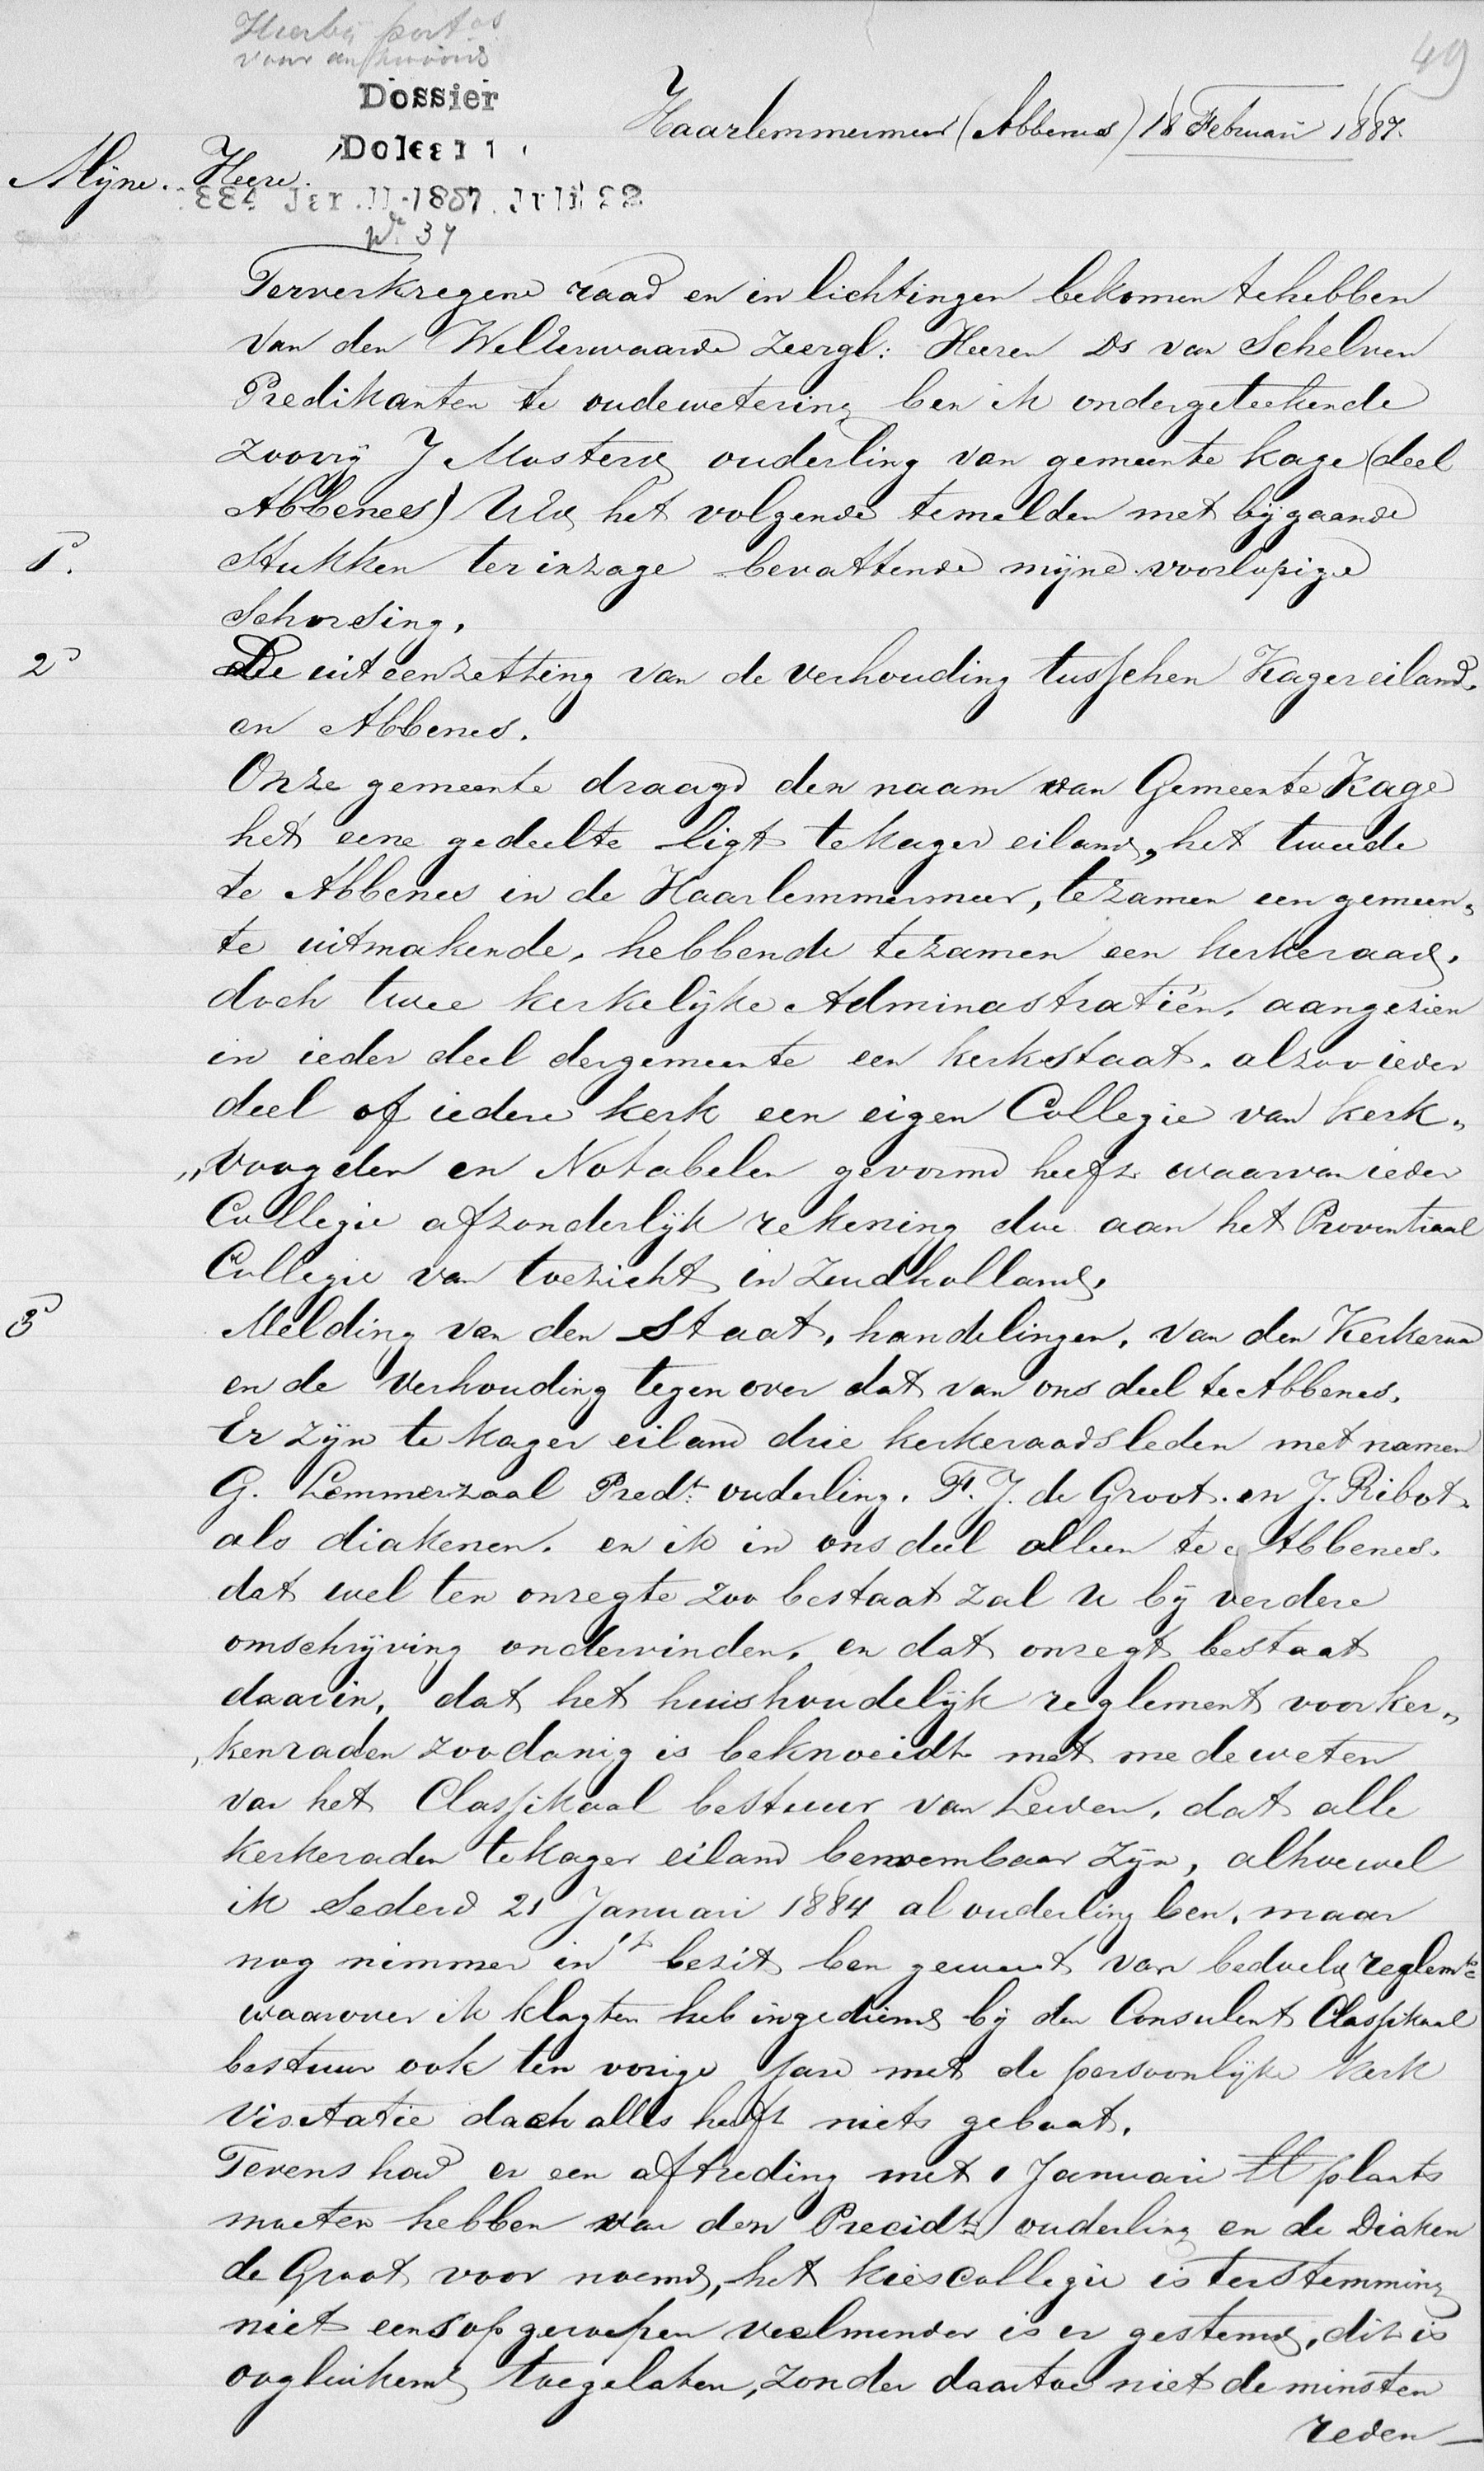 Hierbij port os
voor antwoord
49
Dossier
Haarlemmermeer (Abbenes) 18 Februari 1887.
Doleer
Mijne. Heere.
1887
No 37
Terverkregene raad en in lichtingen bekomen tehebben
van den WelEerwaarde Zeergl: Heeren Ds van Schelven
Predikanten te oudewetering ben ik ondergeteekende
zoovrij J Mosterd ouderling van gemeente kage (deel
Abbenees) UEd het volgende temelden met bijgaande
1o. Stukken terinzage bevattende mijne voorlopige
Schorsing.
2o De uiteenzetting van de verhouding tusschen Kagereiland.
en Abbenes.
Onze gemeente draagd den naam van Gemeente Kage
het eene gedeelte ligt te kager eiland, het tweede
te Abbenes in de Haarlemmermeer, tezamen een gemeen„
te uitmakende, hebbende tezamen een kerkeraad.
doch twee kerkelijke Adminastratiën, aangezien
in ieder deel dergemeente een kerkstaat. alzoo ieder
deel of iedere kerk een eigen Collegie van kerk„
„voogden en Notabelen gevormd heeft waarvan ieder
Collegie afzonderlijk rekening doe aan het Proventiaal
Collegie van toezicht in Zuidholland.
3o Melding van den Staat, handelingen, van den Kerkeraa
en de verhouding tegenover dat van ons deel te Abbenes.
Er zijn te kager eiland drie kerkeraadsleden met namen
G. Lemmerzaal Predt. ouderling. F. J. de Groot. en J. Ribot.
als diakenen. en ik in ons deel alleen te Abbenes.
dat wel ten onregte zoo bestaat zal u bij verdere
omschrijving ondervinden, en dat onregt bestaat
daarin, dat het huishoudelijk reglement voor ker„
„kenraden zoodanig is beknoeidt met medeweten
van het Classikaal bestuur van Leiden, dat alle
kerkeraden te kager eiland benoembaar zijn, alhoewel
ik Sederd 21 Januari 1884 al ouderling ben, maar
nog nimmer in 't bezit ben geweest van bedoeld reglemte
waarover ik klagten heb ingediend bij den Consulent Classikaal
bestuur ook ten vorige jare met de persoonlijke kerk
visitatie dach alles heeft niets gebaat.
Tevens had er een aftreding met 1 Januari ll plaats
moeten hebben van den Precidt ouderling en de Diaken
de Groot voor noemd, het kiescollegie is terstemming
niet eens op geroepen veelminder is er gestemd, dit is
oogluikend toegelaten, zonder daartoe niet de minsten
reden—